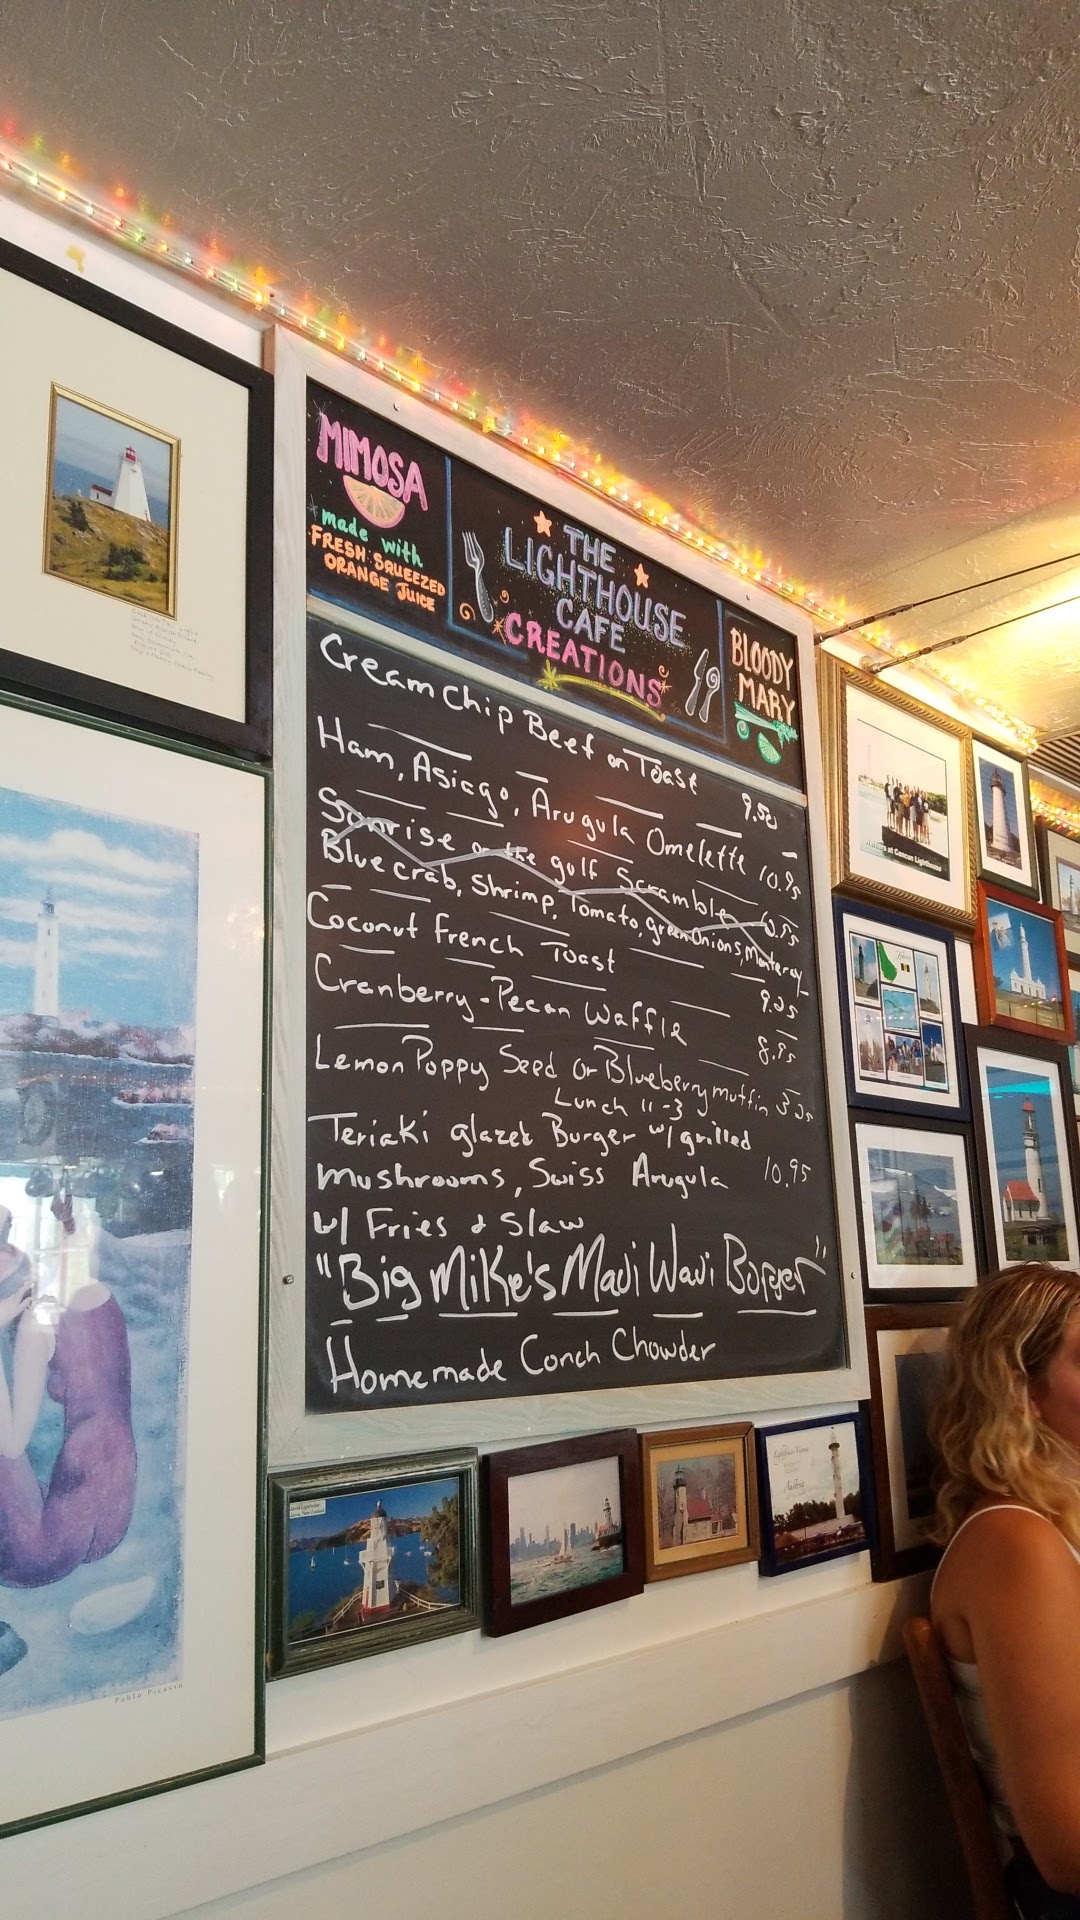 MIMOSA
made with
FRESH SQUEEZED
ORANGE JUICE
THE
LIGHTHOUSE
CAFE
CREATIONS
BLOODY
MARY
Cream Chip Beef on Toast 9.50
Ham, Asiago, Arugula Omelette 10.95
Sonrise on the gulf Scramble 10.95
Blue crab, Shrimp, Tomato, green Onions, Monterey
Coconut French Toast 9.25
Cranberry-Pecan Waffle 8.95
Lemon Poppy Seed or Blueberry muffin 3.25
Lunch 11-3
Teriaki glazed Burger w/ grilled
Mushrooms, Swiss Arugula 10.95
w/ Fries & Slaw
"Big Mike's Maui Waui Burger"
Homemade Conch Chowder
Pablo Picasso
at Cancun Lighthouse
Austria